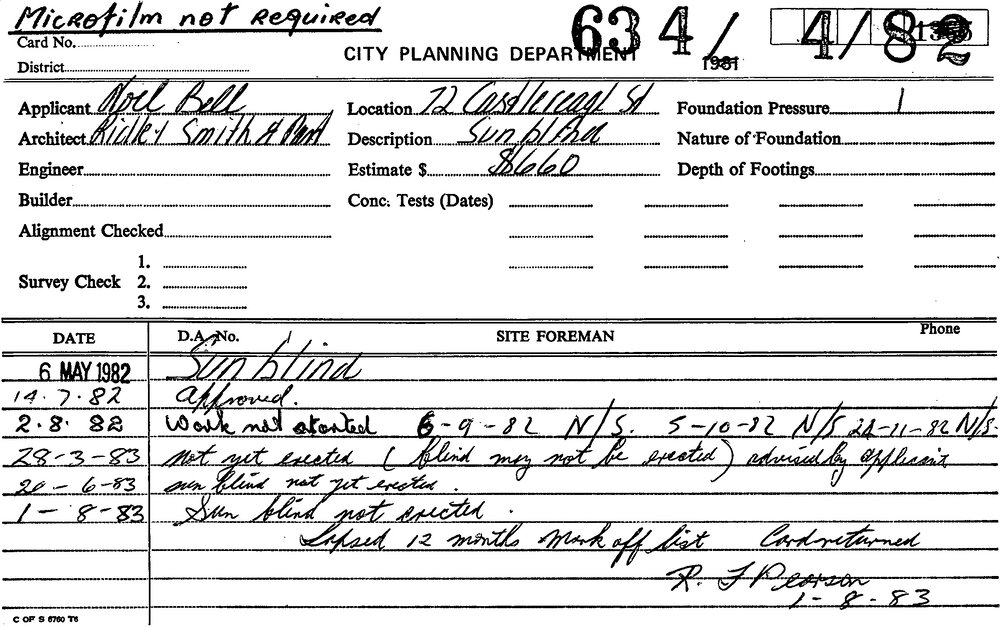 Microfilm not required
Card No.
District
CITY PLANNING DEPARTMENT
634/ 4/82
1981
Applicant Noel Bell
Location 72 Castlereagh St
Foundation Pressure 1
Architect Ridley Smith & Part
Description Sunblind
Nature of Foundation
Engineer
Estimate $ $660
Depth of Footings
Builder
Conc. Tests (Dates)
Alignment Checked
Survey Check
1.
2.
3.
DATE D.A. No. SITE FOREMAN Phone
6 MAY 1982 Sun blind
14.7.82 Approved.
2.8.82 Work not started 6-9-82 N/S. 5-10-82 N/S 24-11-82 N/S.
28-3-83 not yet erected (blind may not be erected) advised by applicant
20-6-83 sun blind not yet erected.
1-8-83 Sun blind not erected.
Lapsed 12 months Mark off list Card returned
R. F Pearson
1-8-83
C OF S 6760 T6